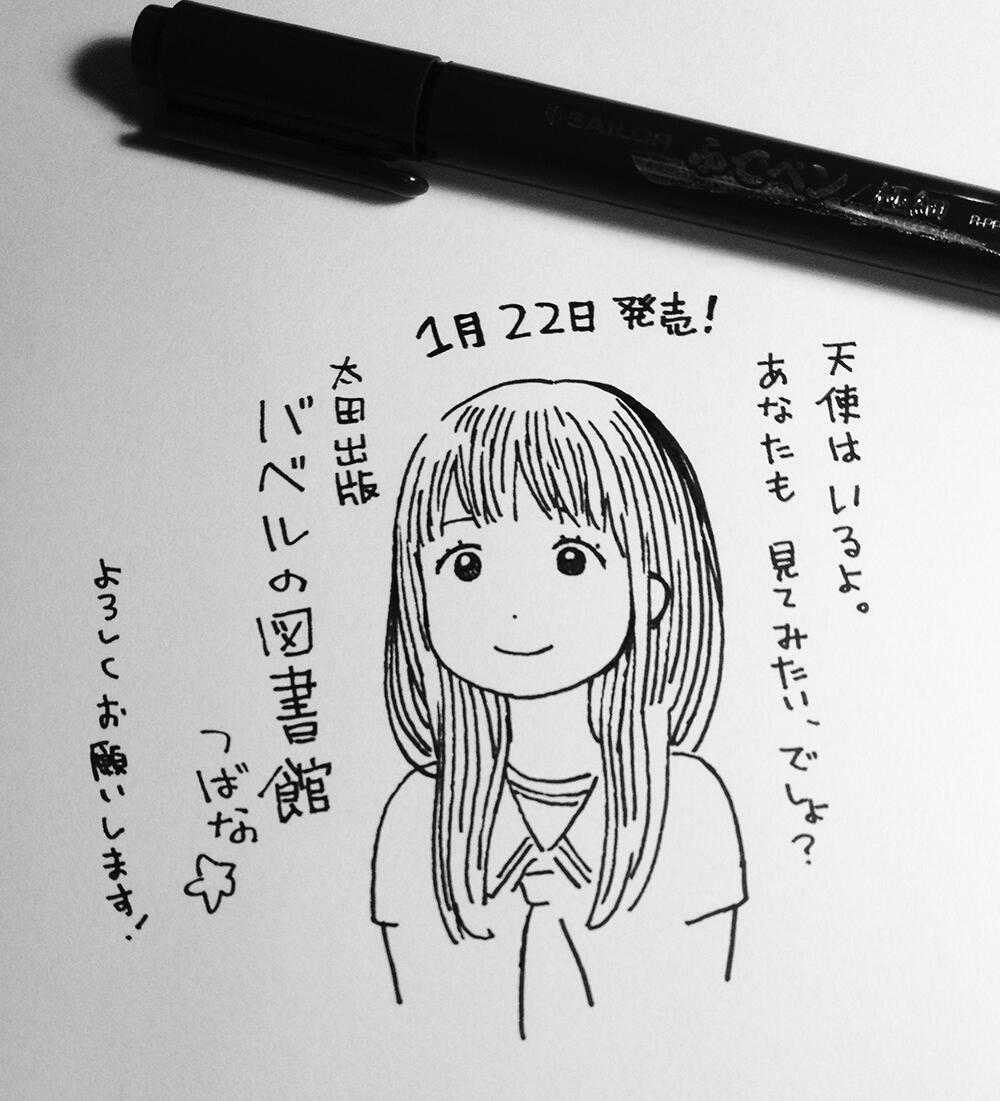 SAILOR
ふでペン/極細
1月22日発売!
天使はいるよ。
あなたも 見てみたい、でしょ?
太田出版
バベルの図書館
つばな☆
よろしくお願いします!